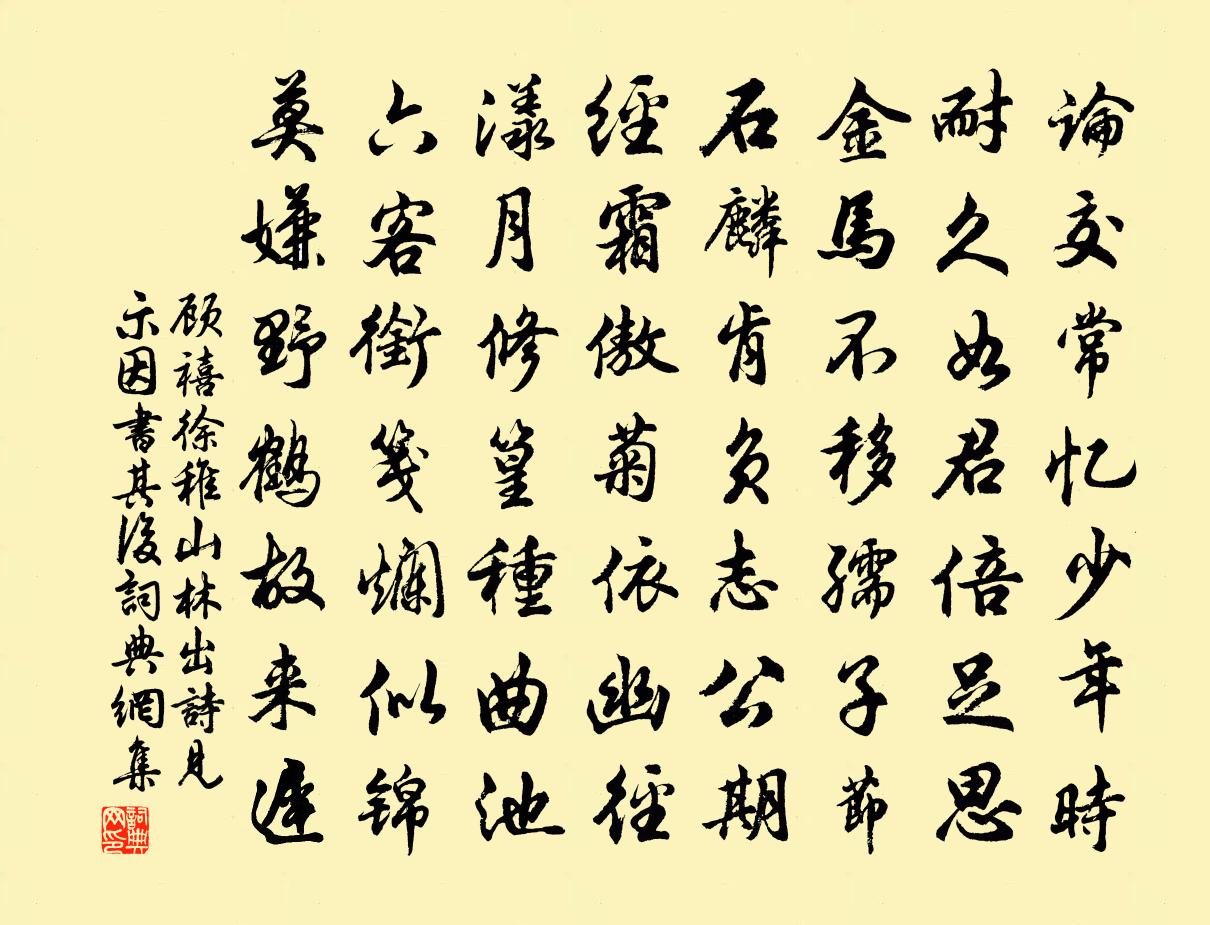 論交常忆少年時
耐久如君倍足思
金馬不移孺子節
石麟肯負志公期
經霜傲菊依幽徑
漾月修篁種曲池
六客銜箋爛似锦
莫嫌野鶴故来遲
顾禧徐稚山林出詩見
示因書其後詞典網集
詞典
网印